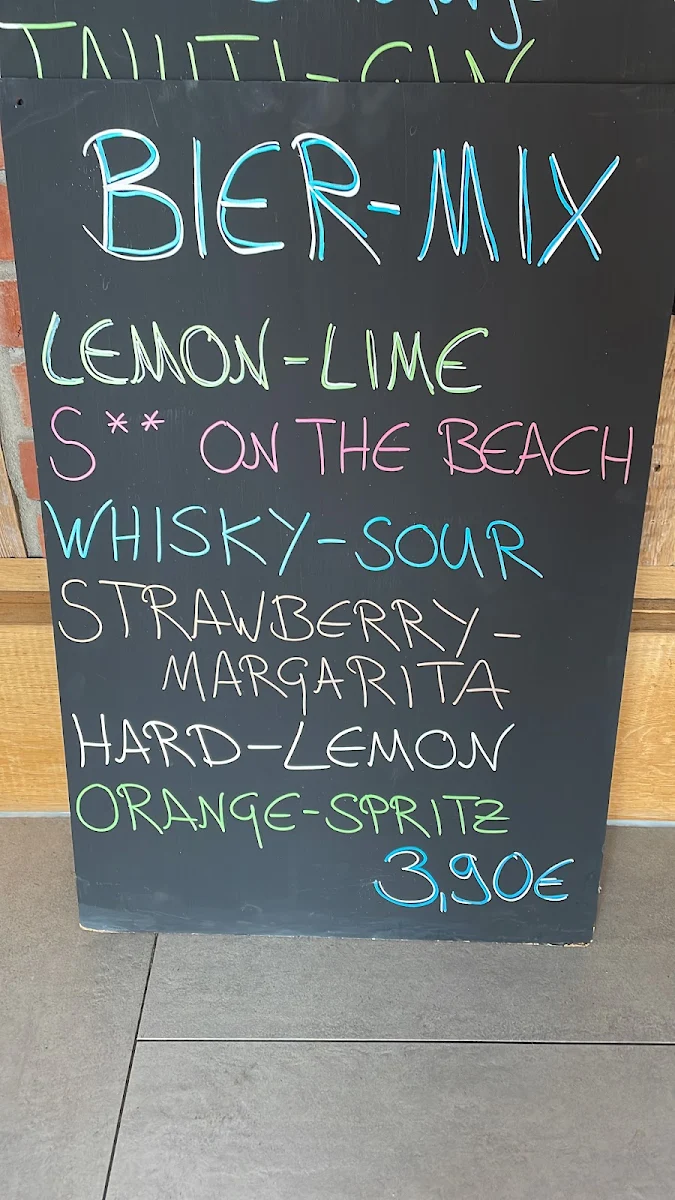 BIER-MIX
LEMON-LIME
S** ON THE BEACH
WHISKY-SOUR
STRAWBERRY-
MARGARITA
HARD-LEMON
ORANGE-SPRITZ
3,90€